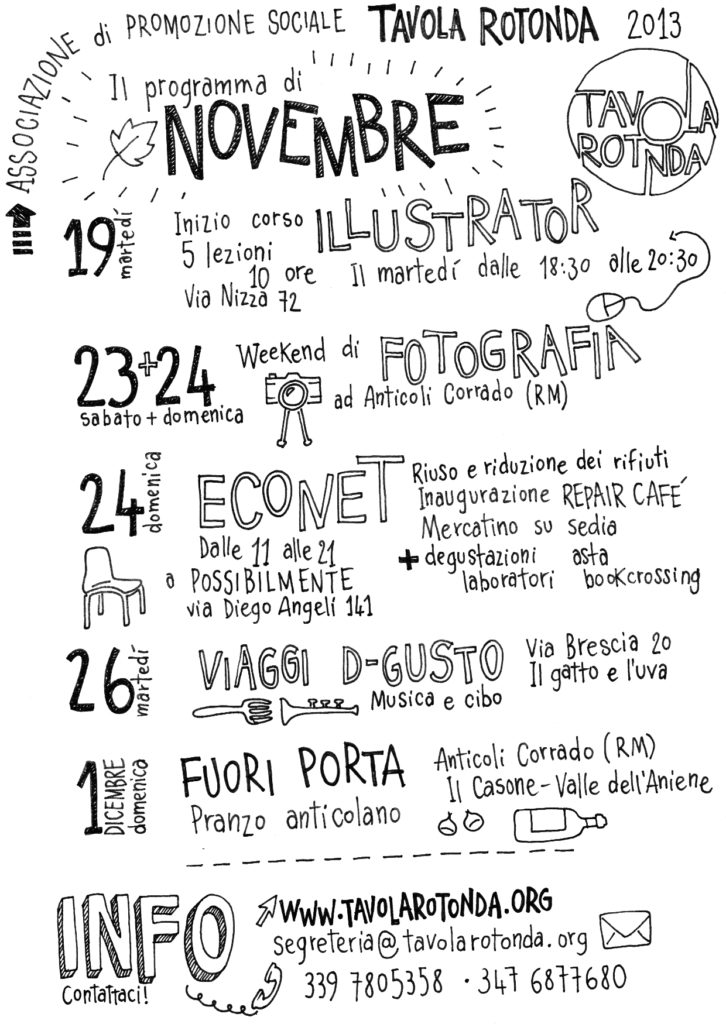 ASSOCIAZIONE di PROMOZIONE SOCIALE TAVOLA ROTONDA 2013
Il programma di
NOVEMBRE
TAVOLA
ROTONDA
19 martedí
Inizio corso ILLUSTRATOR
5 lezioni
10 ore Il martedí dalle 18:30 alle 20:30
Via Nizza 72
23+24 Weekend di FOTOGRAFIA
sabato + domenica ad Anticoli Corrado (RM)
24 domenica
ECONET
Dalle 11 alle 21
a POSSIBILMENTE
via Diego Angeli 141
Riuso e riduzione dei rifiuti
Inaugurazione REPAIR CAFÉ
Mercatino su sedia
+ degustazioni asta
laboratori bookcrossing
26 martedí
VIAGGI D-GUSTO
Musica e cibo
Via Brescia 20
Il gatto e l'uva
1 DICEMBRE domenica
FUORI PORTA
Pranzo anticolano
Anticoli Corrado (RM)
Il Casone - Valle dell'Aniene
INFO
Contattaci!
www.TAVOLAROTONDA.ORG
segreteria@tavolarotonda.org
339 7805358 · 347 6877680